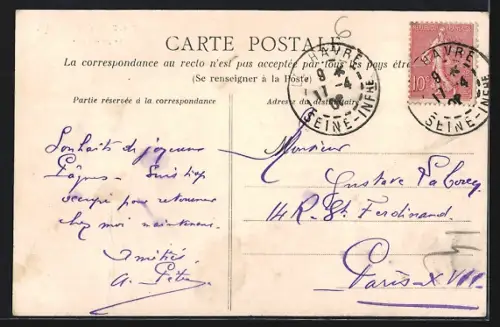 CARTE POSTALE
La correspondance au recto n'est pas acceptée par tous les pays étr
(Se renseigner à la Poste)
Partie réservée à la correspondance
Adresse du destinataire
HAVRE
9 *
17 - 4
SEINE-INFRE
HAVRE
9 *
17 4
SEINE-INFRE
10
Souhaits de joyeuses
Pâques - Suis trop
occupé pour retourner
chez moi maintenant.
Amitiés
A.
Monsieur
Gustave
14 R. St. Ferdinand
Paris - XVII